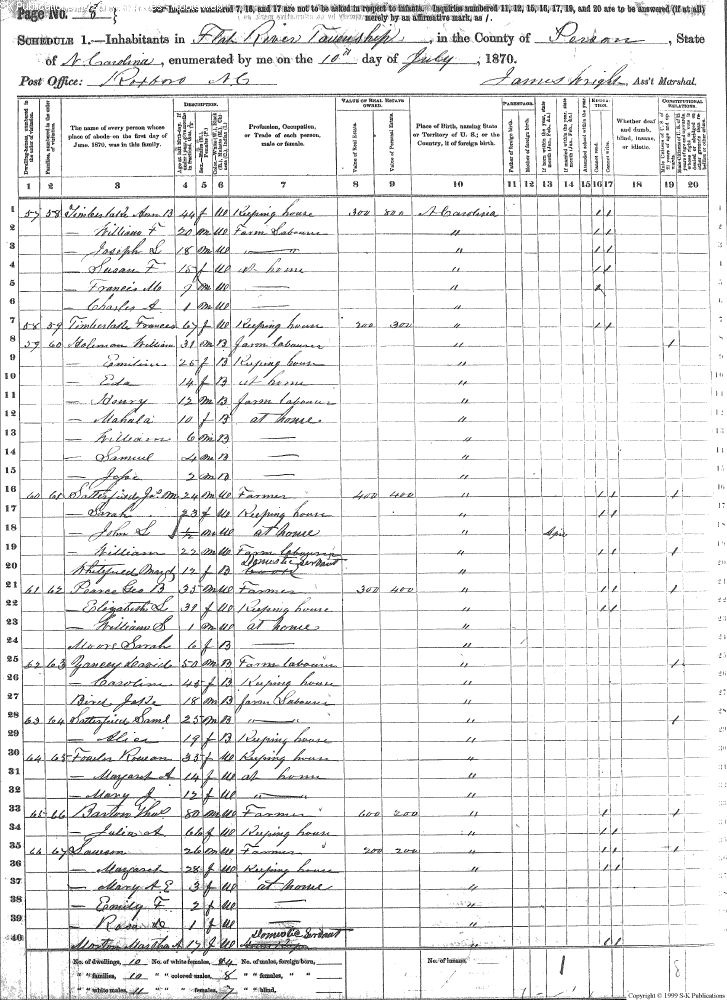 Page No. 8
Inquiries numbered 7, 16, and 17 are not to be asked in respect to infants. Inquiries numbered 11, 12, 15, 16, 17, 19, and 20 are to be answered (if at all) merely by an affirmative mark, as /.
SCHEDULE 1.—Inhabitants in Flat River Township, in the County of Person, State
of N. Carolina, enumerated by me on the 10th day of July, 1870.
Post Office: Roxboro N C James Wright, Ass't Marshal.
DESCRIPTION. VALUE OF REAL ESTATE OWNED. PARENTAGE. EDUCATION. CONSTITUTIONAL RELATIONS.
The name of every person whose place of abode on the first day of June, 1870, was in this family.
Profession, Occupation, or Trade of each person, male or female.
Value of Real Estate.
Value of Personal Estate.
Place of Birth, naming State or Territory of U. S.; or the Country, if of foreign birth.
Father of foreign birth.
Mother of foreign birth.
Cannot read.
Cannot write.
Whether deaf and dumb, blind, insane, or idiotic.
1 2 3 4 5 6 7 8 9 10 11 12 13 14 15 16 17 18 19 20
1 57 58 Timberlake Ann B 44 f W Keeping house 300 800 N Carolina / /
2 — William F 20 m W Farm Labourer " / /
3 — Joseph S 18 m W — " — " / /
4 — Susan F 15 f W at home " / /
5 — Francis M 7 m W — "
6 — Charles A 1 m W — "
7 58 59 Timberlake Frances 67 f W Keeping house 200 300 " / /
8 59 60 Holeman William 31 m B farm labourer " /
9 — Emiline 25 f B Keeping house "
10 — Eda 14 f B at home "
11 — Henry 12 m B farm labour "
12 — Mahala 10 f B at home "
13 — William 6 m B — "
14 — Samuel 4 m B — "
15 — 2 m B — "
16 60 61 Satterfield Jas M 24 m W Farmer 400 400 " / / /
17 — Sarah 23 f W Keeping house " / /
18 — John S m W at home " Apr
19 — William 22 m W Farm labourer " / / /
20 Whitefield Mary 12 f B Domestic Servant "
21 61 62 Pearce Geo B 35 m W Farmer 300 400 " / / /
22 — Elizabeth S 39 f W Keeping house " / /
23 — William S 1 m W at home "
24 Moore Sarah 6 f B — "
25 62 63 Yancey 50 m B Farm labourer " /
26 — Caroline 45 f B Keeping house "
27 18 m B farm Labourer "
28 63 64 Satterfield Saml 25 m B — " — " /
29 — Alice 19 f B Keeping house "
30 64 65 Fowler 35 f W Keeping house "
31 — Margaret A 14 f W at home "
32 — Mary J 12 f W — " — "
33 65 66 Barton Thos 80 m W Farmer 600 200 " / /
34 — Julia A 66 f W Keeping house " / /
35 66 67 Lawson 26 m W Farmer 200 200 " / / /
36 — Margaret 28 f W Keeping house " / /
37 — Mary A E 3 f W at home "
38 — Emily F 2 f W — "
39 — Rosa 1 f W — "
40 Morton Martha A 17 f W Domestic Servant " / /
No. of dwellings, 10 No. of white females, 14 No. of males, foreign born, No. of insane,
" " families, 10 " " colored males, 8 " " females, " 1 8
" " white males, 11 " " females, 7 " " blind,
Copyright © 1999 S-K Publications